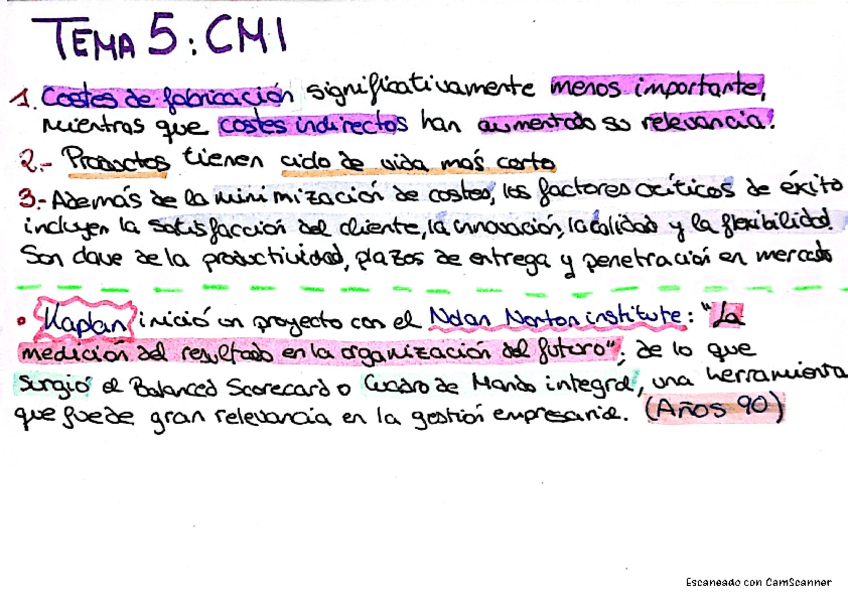 TEMA 5: CMI
1. Costes de fabricación significativamente menos importante,
mientras que costes indirectos han aumentado su relevancia.
2.- Productos tienen ciclo de vida más corto
3.- Además de la minimización de costes, los factores críticos de éxito
incluyen la satisfacción del cliente, la innovación, la calidad y la flexibilidad.
Son clave de la productividad, plazos de entrega y penetración en mercado
• Kaplan inició un proyecto con el Nolan Norton institute: "La
medición del resultado en la organización del futuro"; de lo que
surgió el Balanced Scorecard o Cuadro de Mando integral, una herramienta
que fue de gran relevancia en la gestión empresarial. (Años 90)
Escaneado con CamScanner